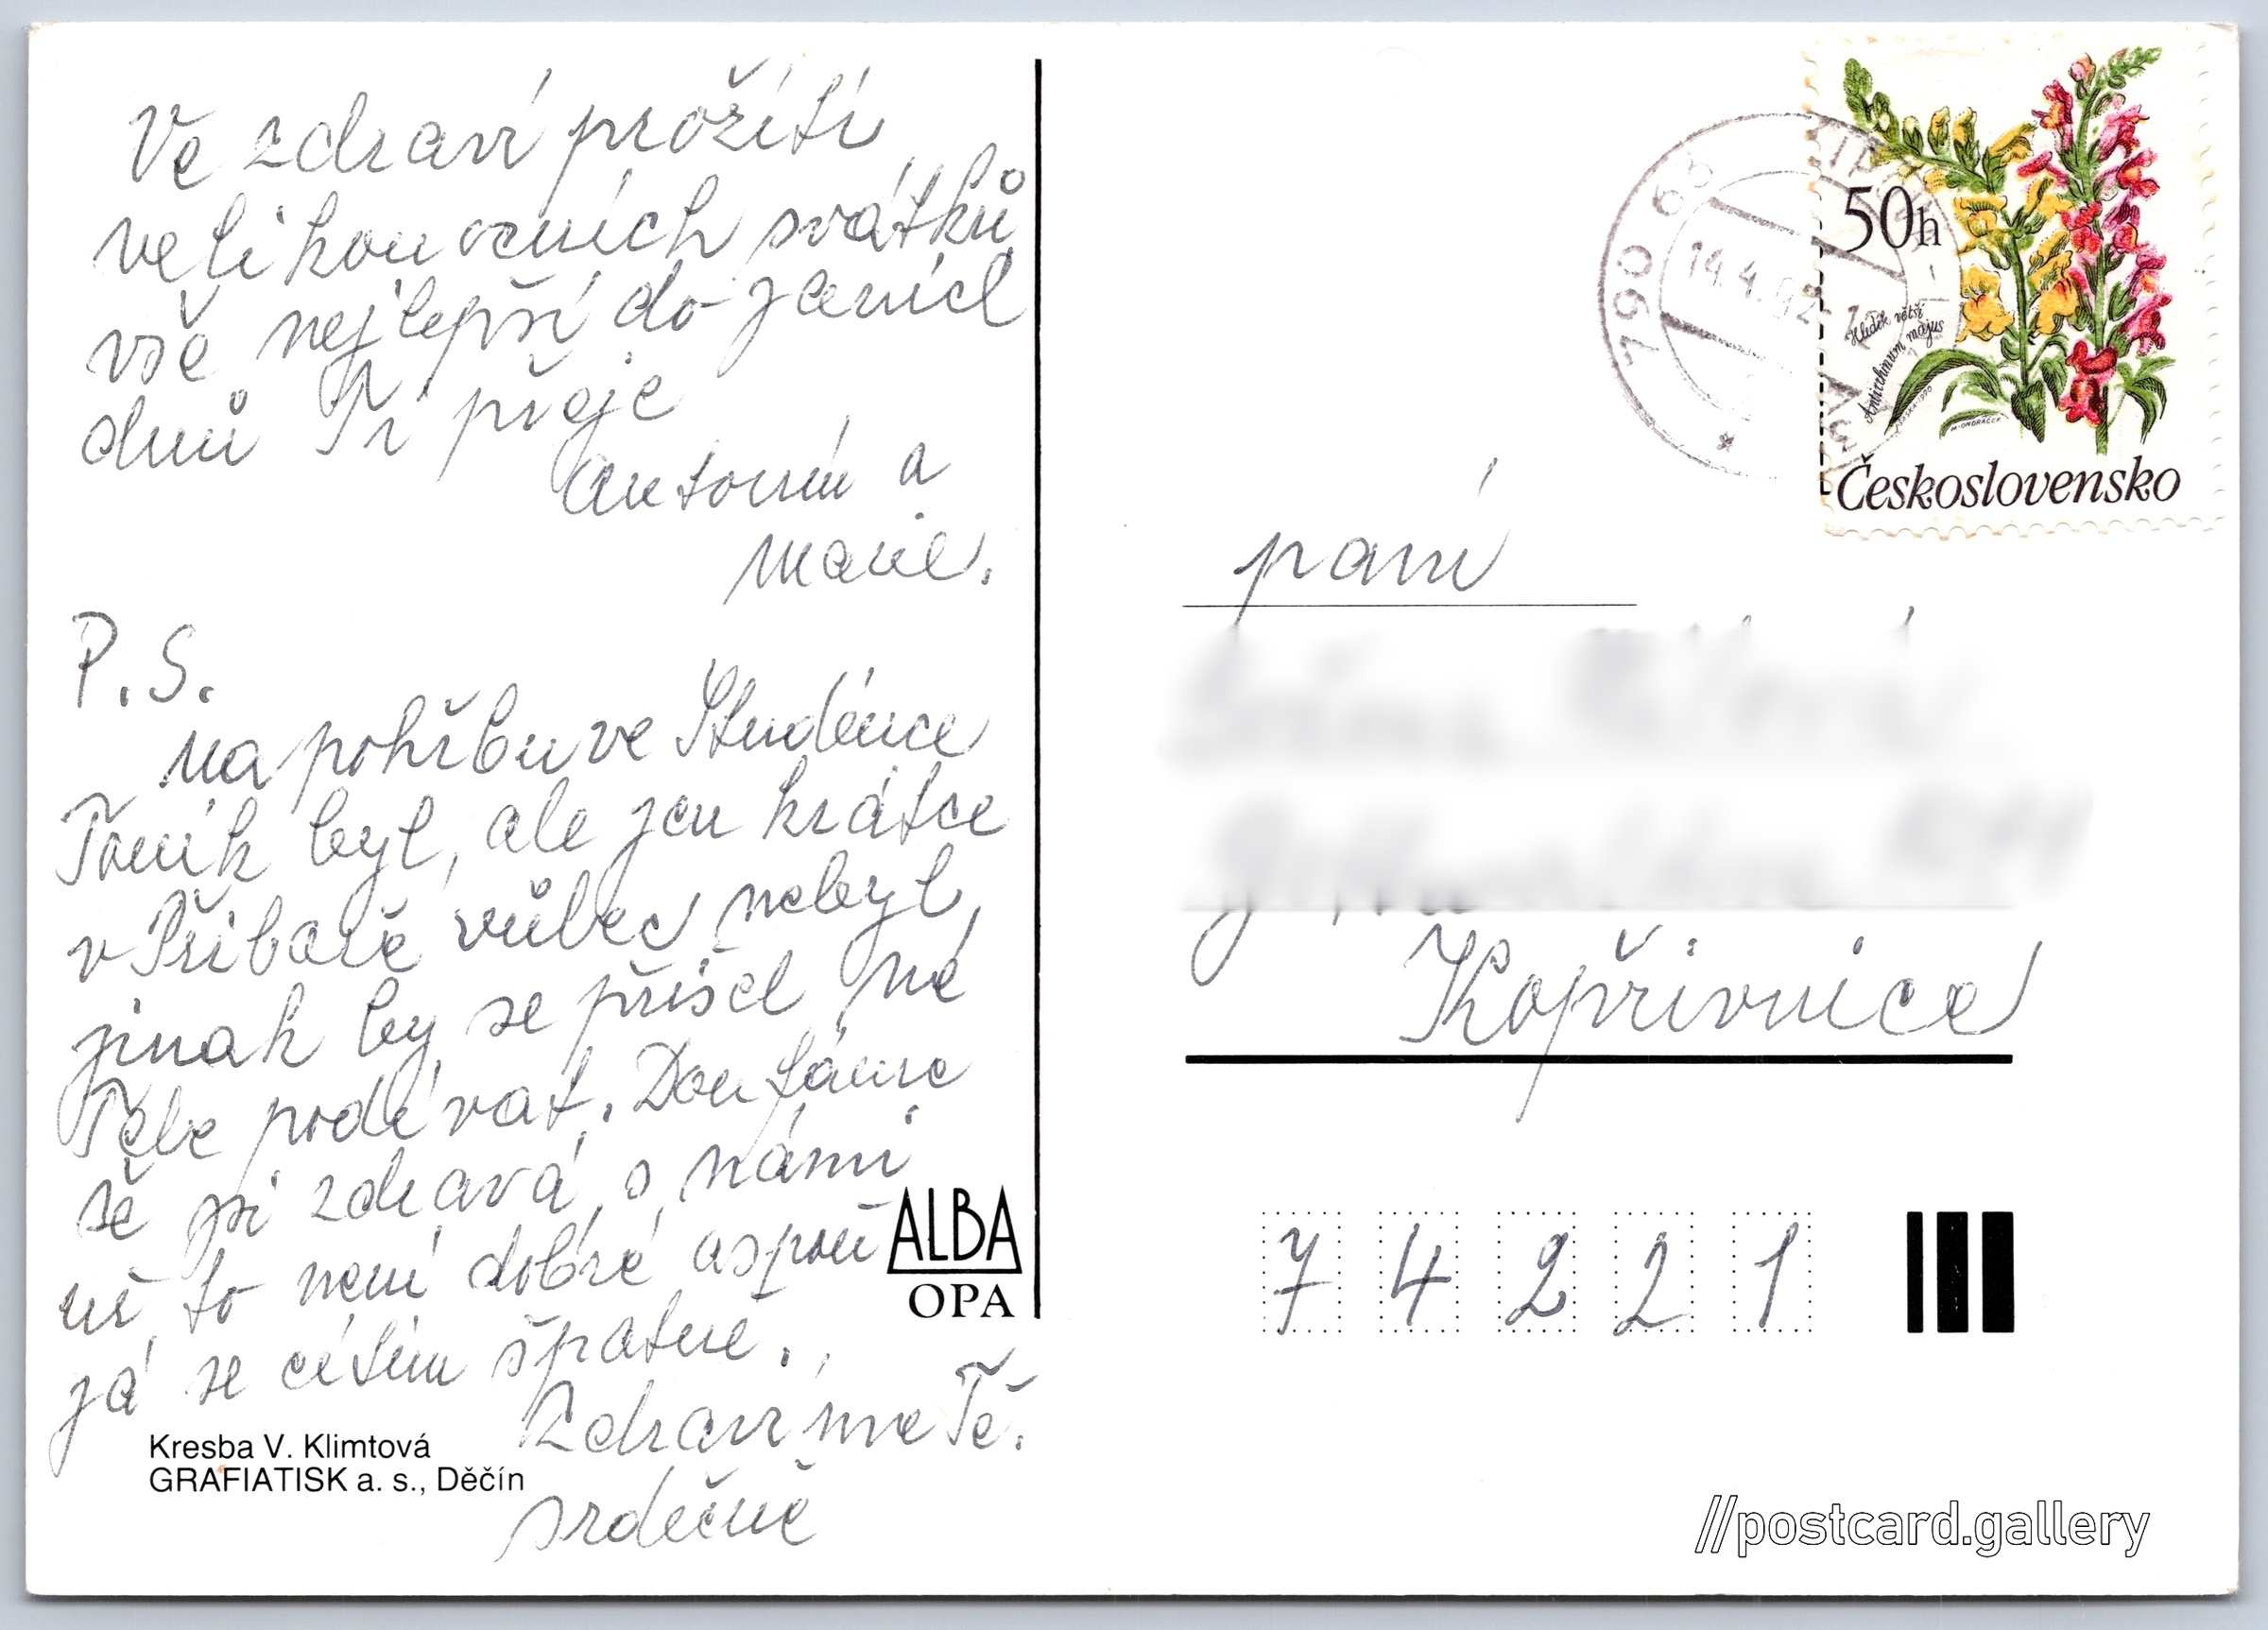 Ve zdraví prožití
velikonočních svátků
vše nejlepší do jarních
dnů Ti přeje
Antonín a
Marie.
P.S.
Na pohřbu ve Studénce
Toník byl, ale jen krátce
v Příboře vůbec nebyl,
jinak by se přišel na
Tebe podívat. Doufáme
že jsi zdravá, s námi
už to není dobré aspoň
já se cítím špatně.
Zdravíme Tě.
srdečně
ALBA
OPA
Kresba V. Klimtová
GRAFIATISK a. s., Děčín
50h
Hledík větší
Antirrhinum majus
Československo
790 65
14.4.92
paní
Kopřivnice
74221
//postcard.gallery